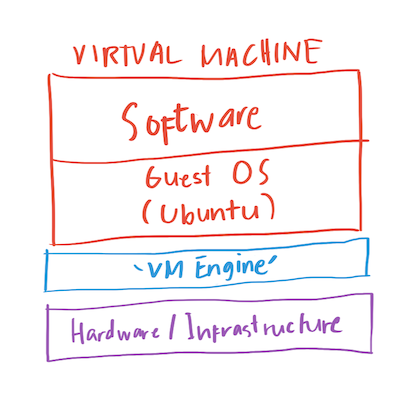 VIRTUAL MACHINE
Software
Guest OS
(Ubuntu)
'VM Engine'
Hardware / Infrastructure